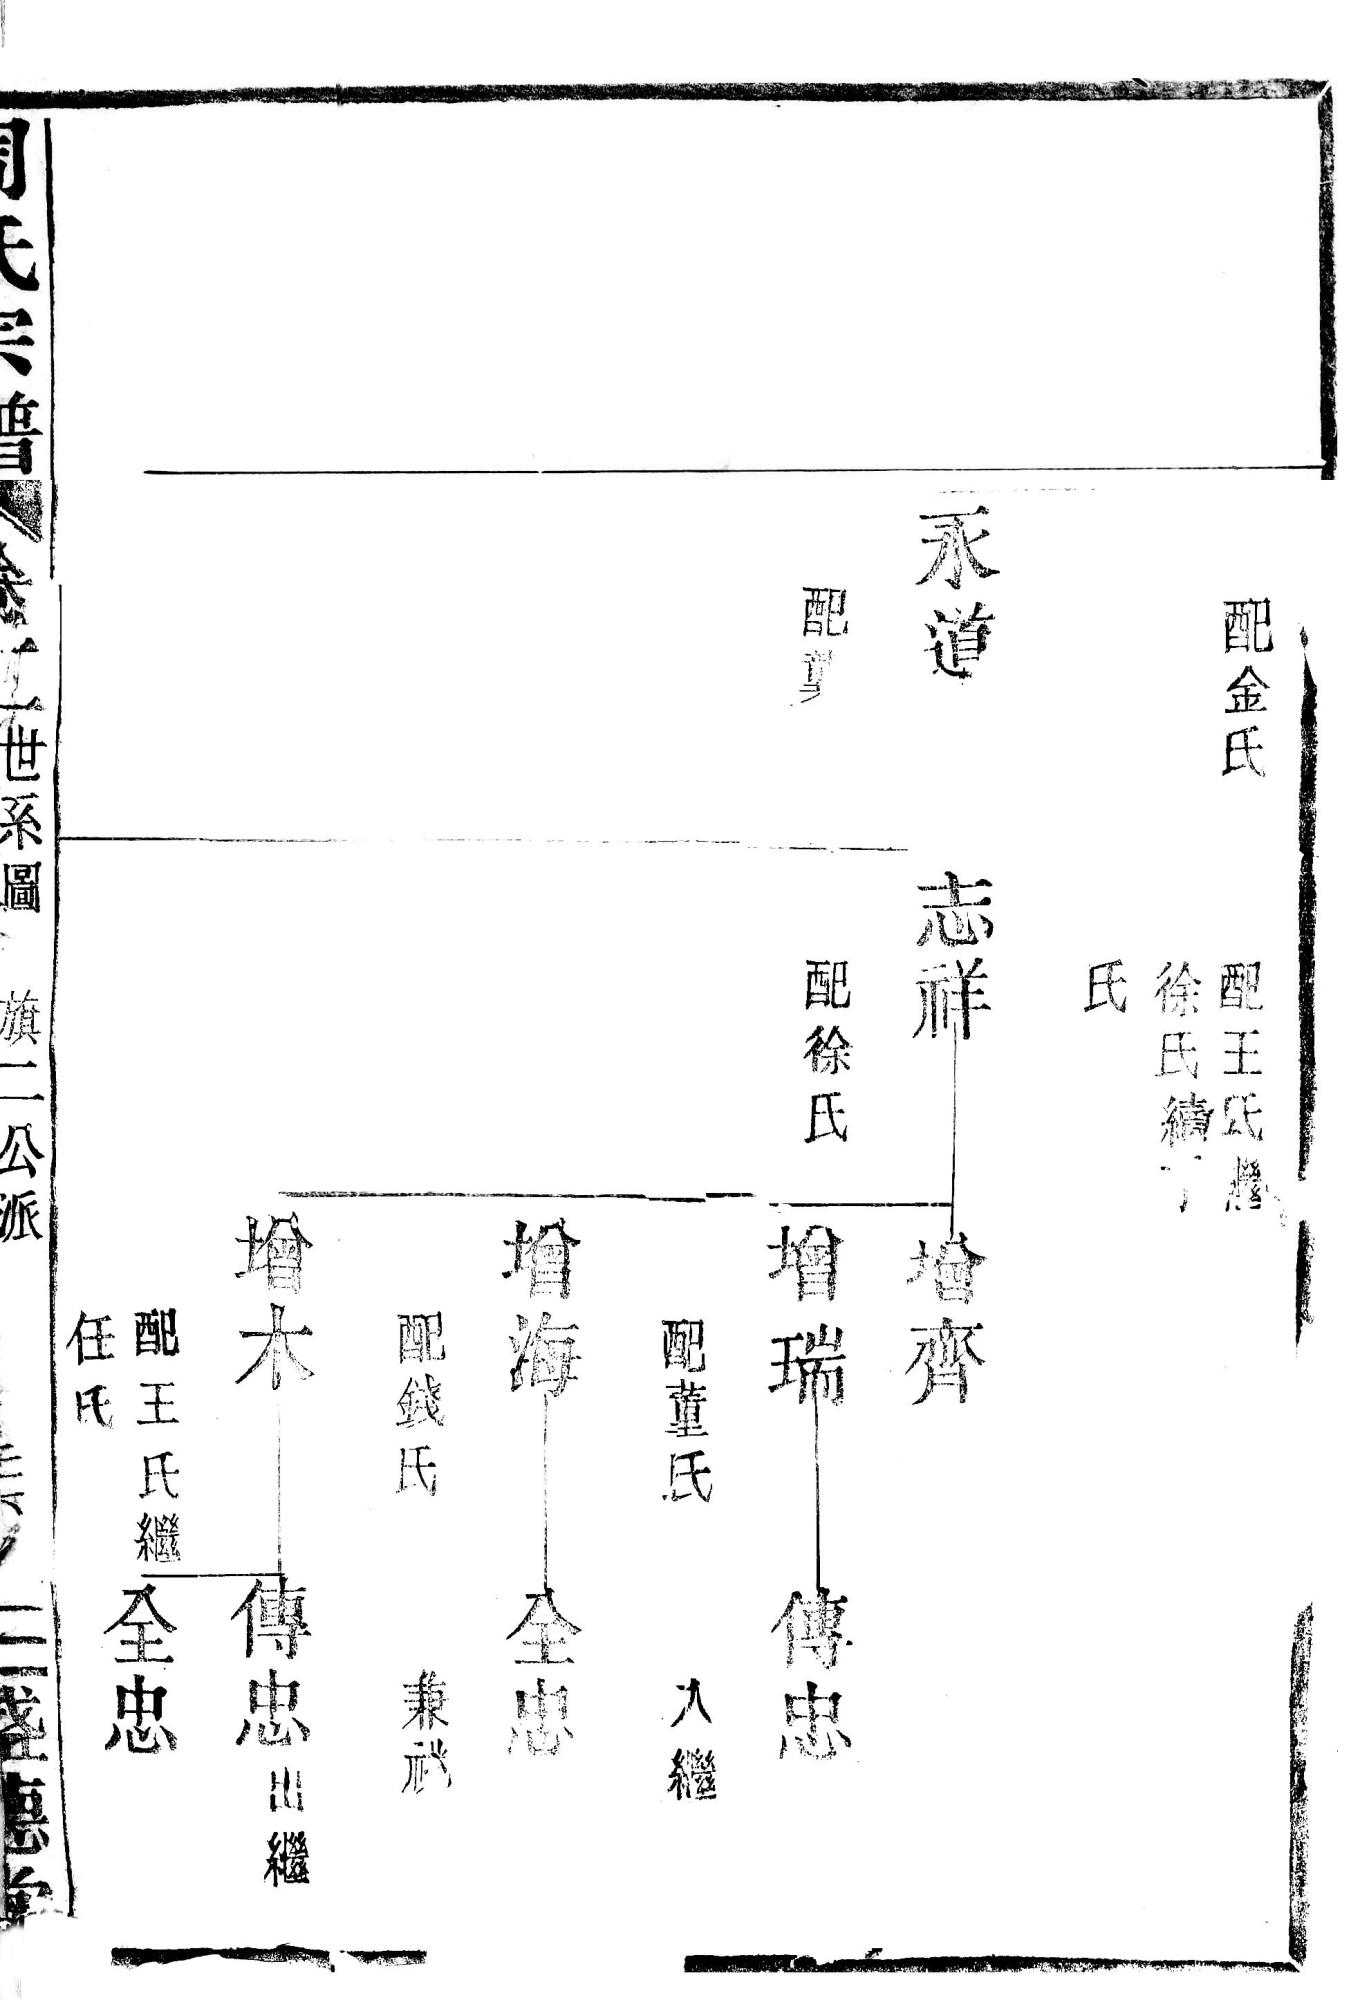 配金氏
永道
配董
配王氏繼
徐氏續丁
氏
志祥
配徐氏
增齊
增瑞
配董氏
增海
配錢氏
增木
配王氏繼
任氏
傳忠
入繼
全忠
兼祧
傳忠出繼
全忠
周氏宗譜
世系圖
旗二公派